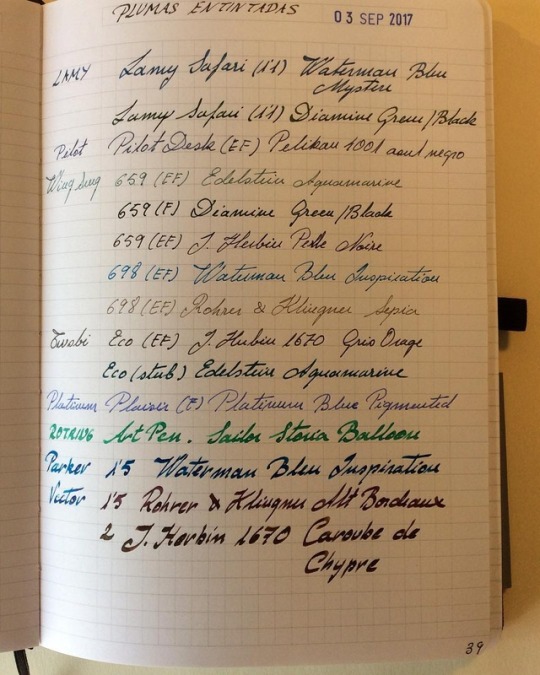 PLUMAS ENTINTADAS 03 SEP 2017
LAMY Lamy Safari (1'1) Waterman Bleu
Mystere
Lamy Safari (1'1) Diamine Green/Black
Pilot Pilot Desk (EF) Pelikan 4001 azul negro
Wing Sung 659 (EF) Edelstein Aquamarine
659 (F) Diamine Green/Black
659 (EF) J. Herbin Perle Noire
698 (EF) Waterman Bleu Inspiration
698 (EF) Rohrer & Klingner Sepia
Twsbi Eco (EF) J. Herbin 1670 Gris Orage
Eco (stub) Edelstein Aquamarine
Platinum Plaisir (F) Platinum Blue Pigmented
ROTRING Art Pen. Sailor Storia Balloon
Parker 1'5 Waterman Bleu Inspiration
Vector 1'5 Rohrer & Klingner Alt Bordeaux
2 J. Herbin 1670 Caroube de
Chypre
39